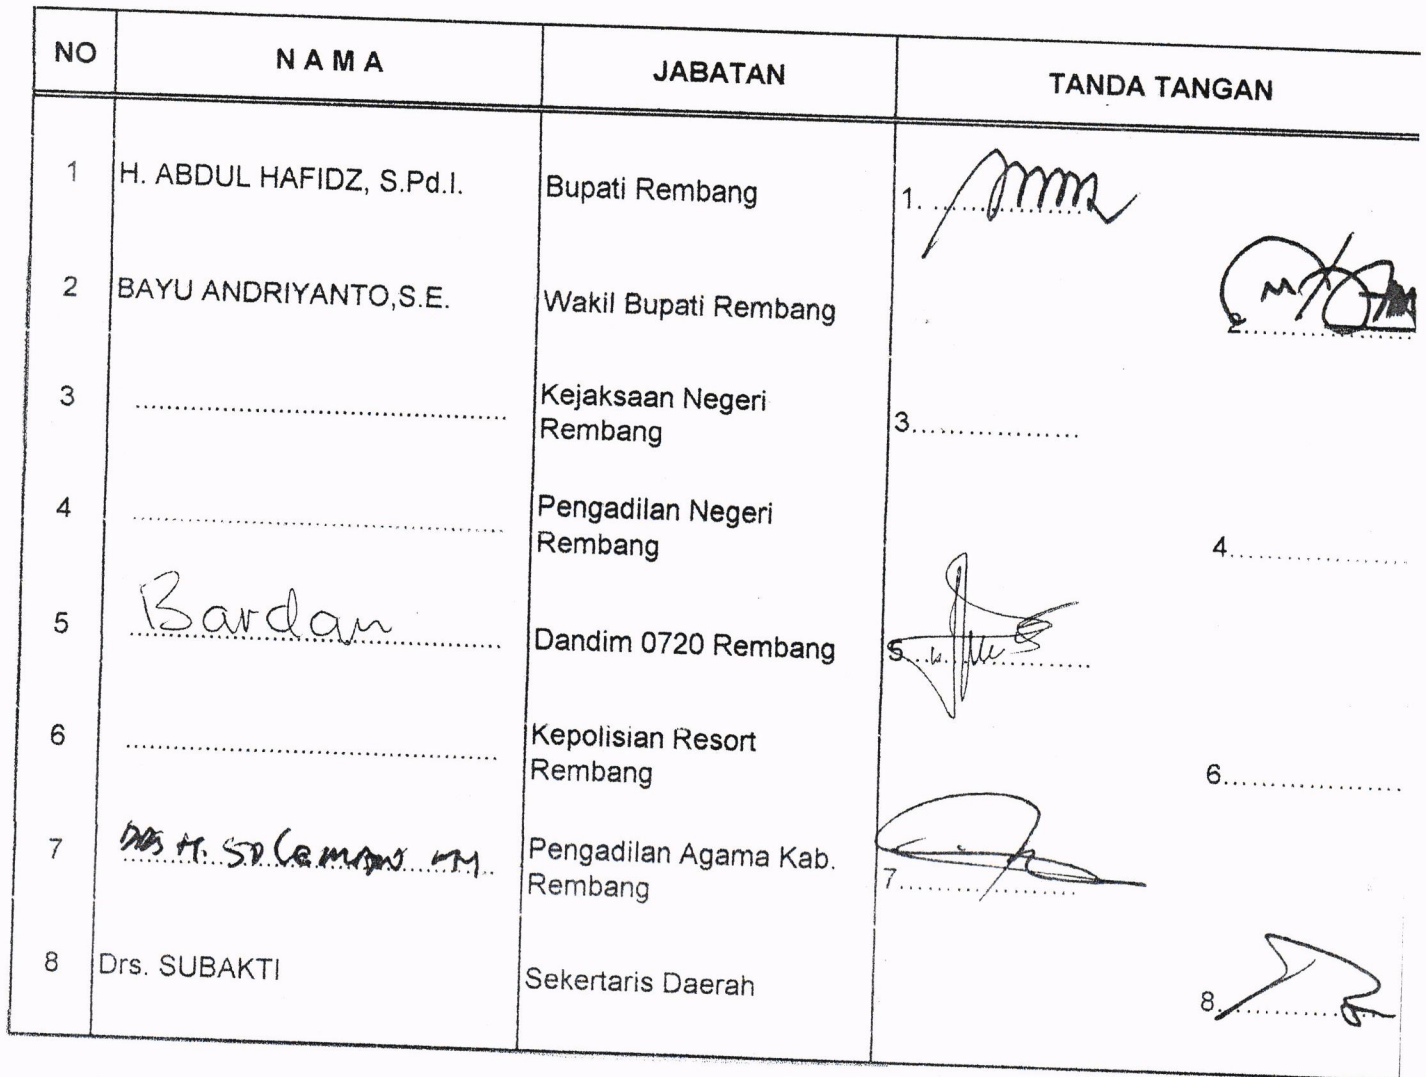 NO NAMA JABATAN TANDA TANGAN
1 H. ABDUL HAFIDZ, S.Pd.I. Bupati Rembang 1. ..................
2 BAYU ANDRIYANTO,S.E. Wakil Bupati Rembang 2..................
3 .......................................... Kejaksaan Negeri
Rembang 3..................
4 .......................................... Pengadilan Negeri
Rembang 4..................
5 Bardan Dandim 0720 Rembang 5..................
6 .......................................... Kepolisian Resort
Rembang 6..................
7 DRS H. SOLEMAN MM Pengadilan Agama Kab.
Rembang 7..................
8 Drs. SUBAKTI Sekertaris Daerah 8..................